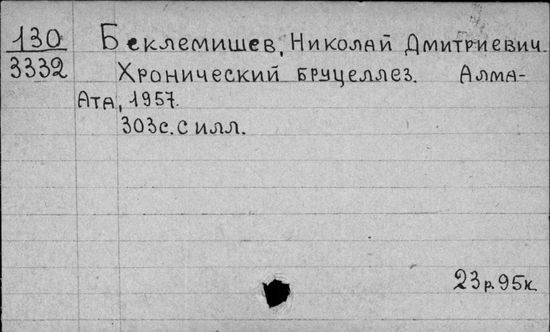 130
3332
Беклемишев, Николай Дмитриевич.
Хронический бруцеллез. Алма-
Ата, 1957.
303с. с илл.
23р.95к.